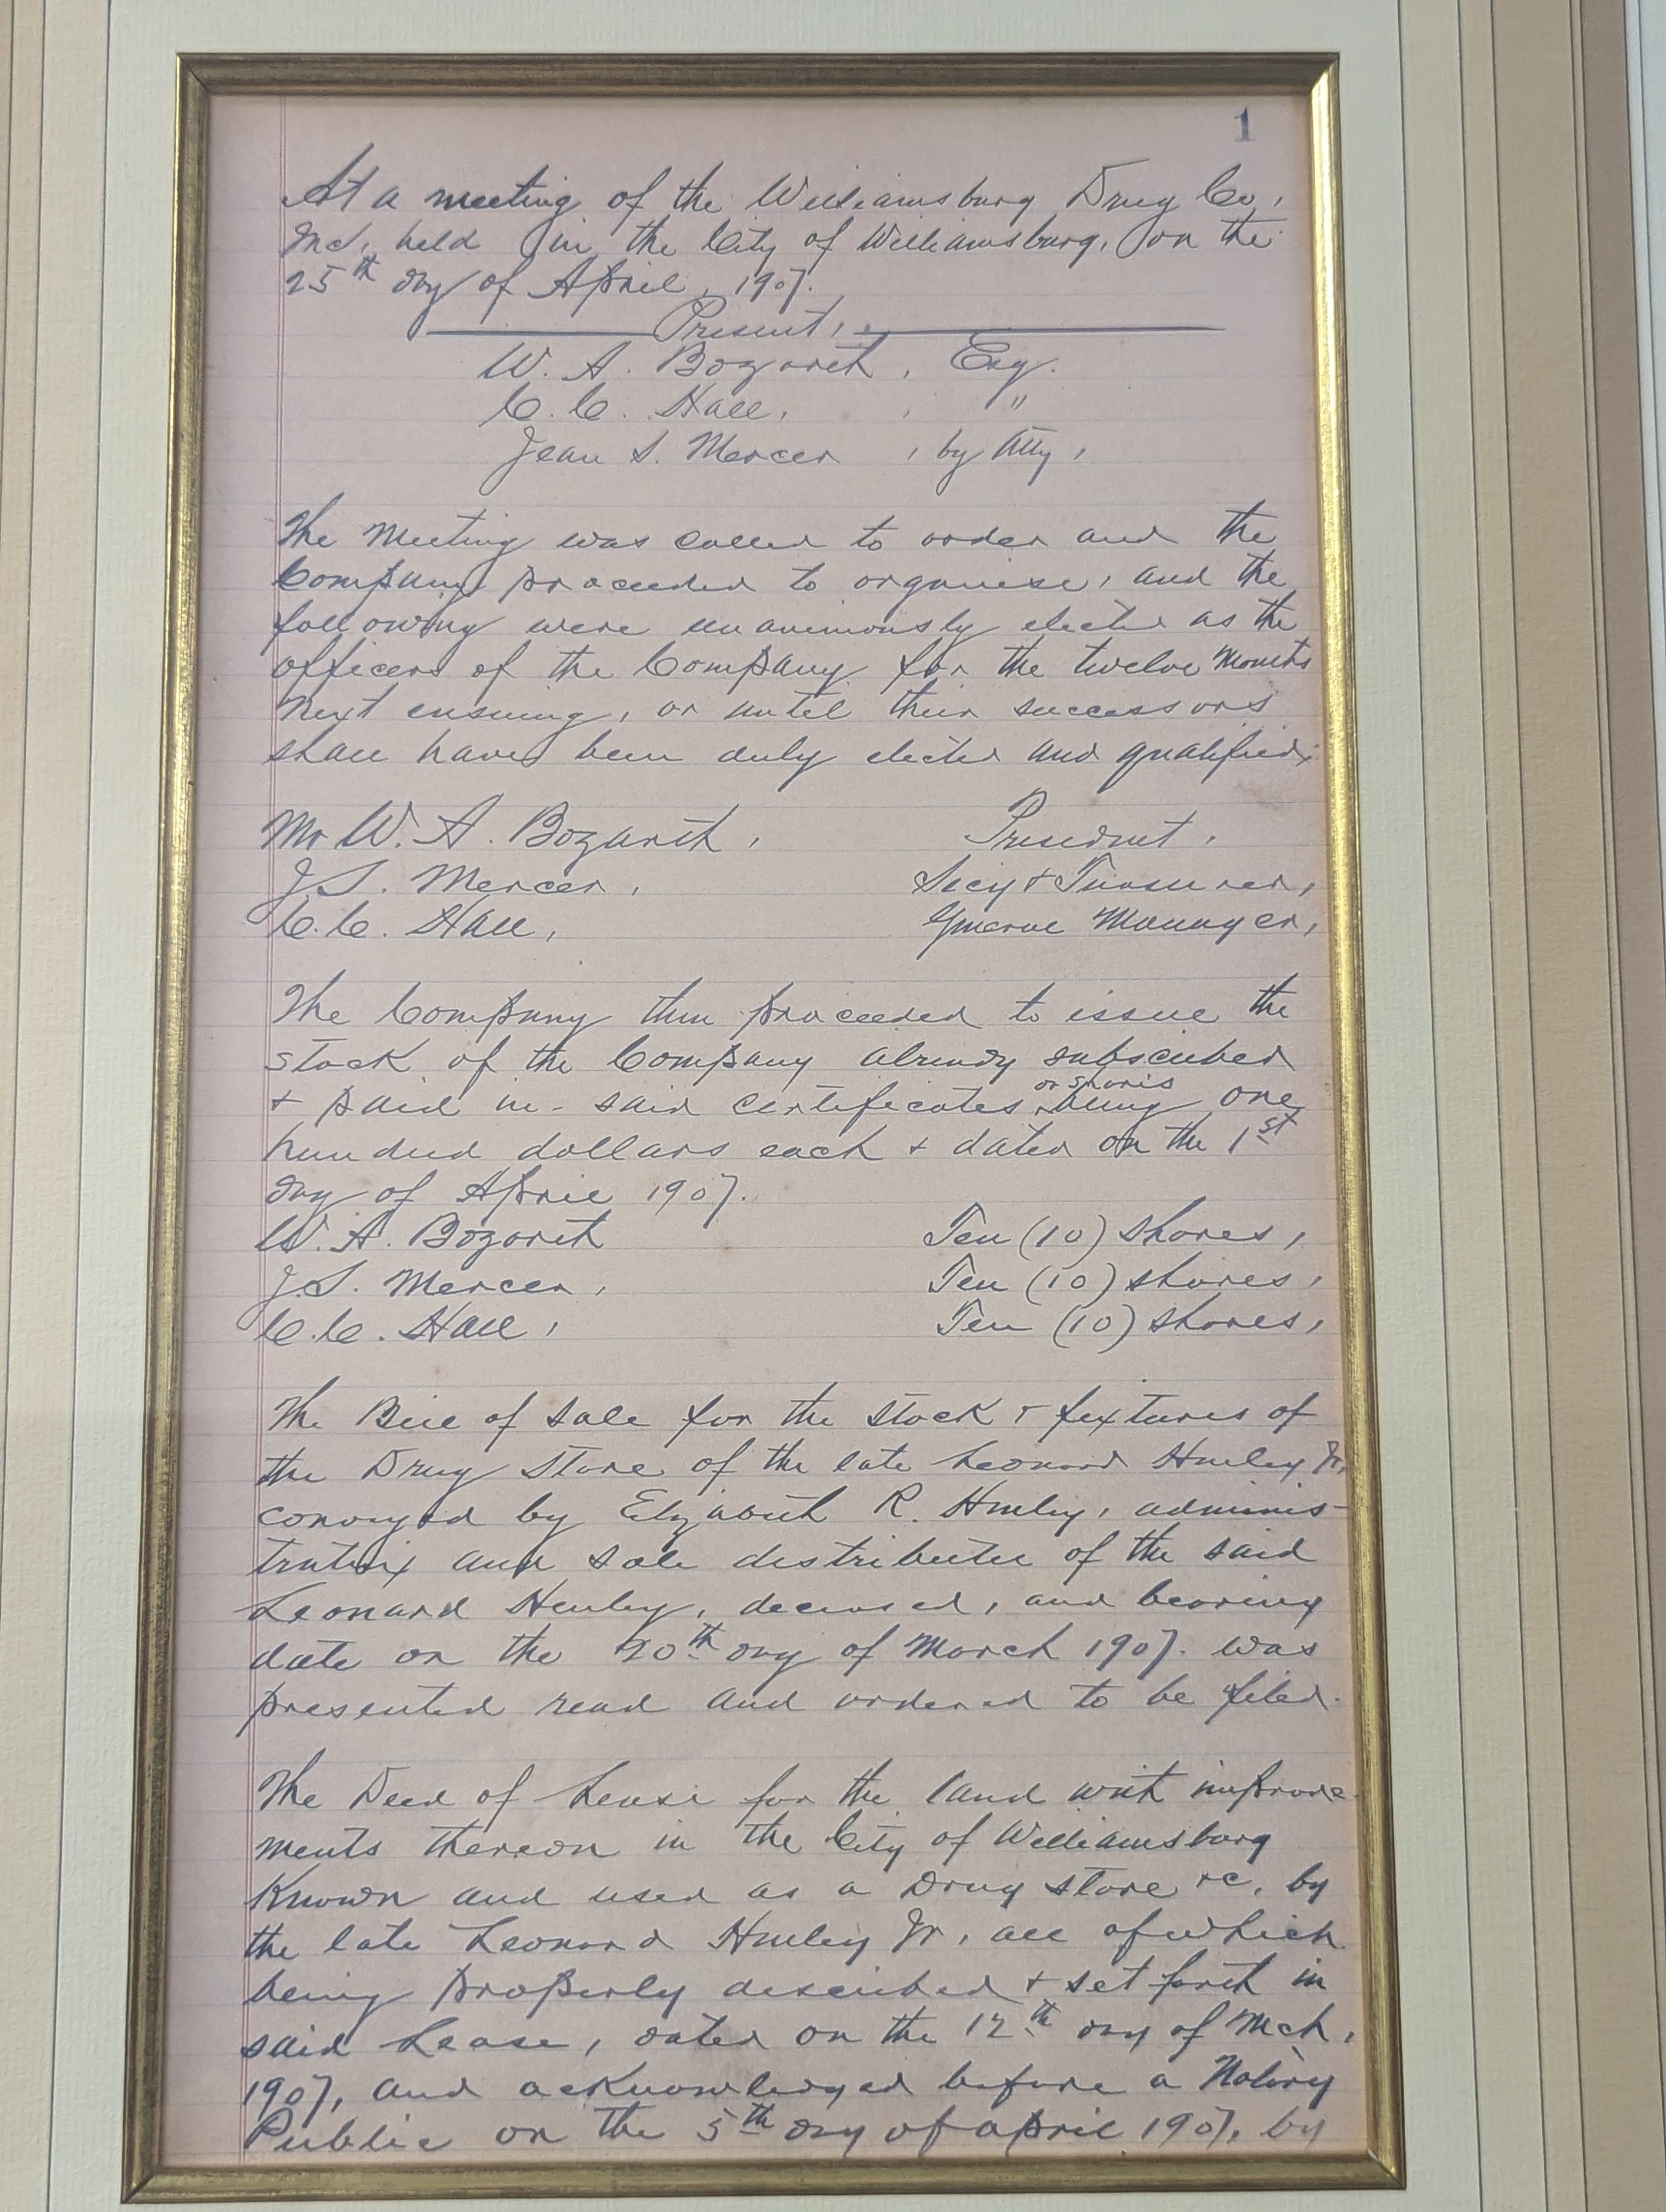 1
At a meeting of the Williamsburg Drug Co.,
Inc., held in the City of Williamsburg, on the
25th day of April, 1907.
Present,
W. A. Bozarth, Esq.
C. C. Hall, , "
Jean S. Mercer , by Atty,
The Meeting was called to order and the
Company proceeded to organise, and the
following were unanimously elected as the
officers of the Company for the twelve Months
next ensuing, or until their successors
shall have been duly elected and qualified;
Mr W. A. Bozarth, President,
J. S. Mercer, Secy & Treasurer,
C. C. Hall, General Manager,
The Company then proceeded to issue the
stock of the Company already subscribed
or shares
& paid in - said certificates being one
hundred dollars each & dated on the 1st
day of April 1907.
W. A. Bozarth Ten (10) shares,
J. S. Mercer, Ten (10) shares,
C. C. Hall, Ten (10) shares,
The Bill of Sale for the stock & fixtures of
the Drug Store of the late Leonard Henley Jr,
conveyed by Elizabeth R. Henley, adminis-
tratrix and sole distributee of the said
Leonard Henley, deceased, and bearing
date on the 20th day of March 1907. was
presented read and ordered to be filed.
The Deed of Lease for the land with improve-
ments thereon in the City of Williamsburg
Known and used as a Drug store &c, by
the late Leonard Henley Jr, all of which
being properly described & set forth in
said Lease, dated on the 12th day of Mch,
1907, and acknowledged before a Notary
Public on the 5th day of april 1907, by